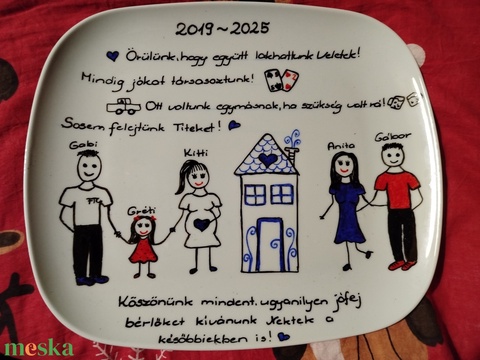 2019~2025
Örülünk, hogy együtt lakhattunk Veletek!
Mindig jókat társasoztunk!
Ott voltunk egymásnak, ha szükség volt rá!
Sosem felejtünk Titeket!
Gabi
Kitti
Anita
Gábor
Gréti
PTC
Köszönünk mindent, ugyanilyen jófej
bérlőket kívánunk Nektek a
későbbiekben is!
meska